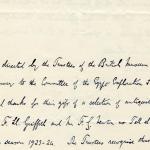 directed by the Trustees of the British Museum
to the Committee of the Egypt Exploration
thanks for their gift of a selection of antiquities
F. Ll. Griffith and Mr. F. G. Newton at Tell
season 1923-24. The Trustees recognise